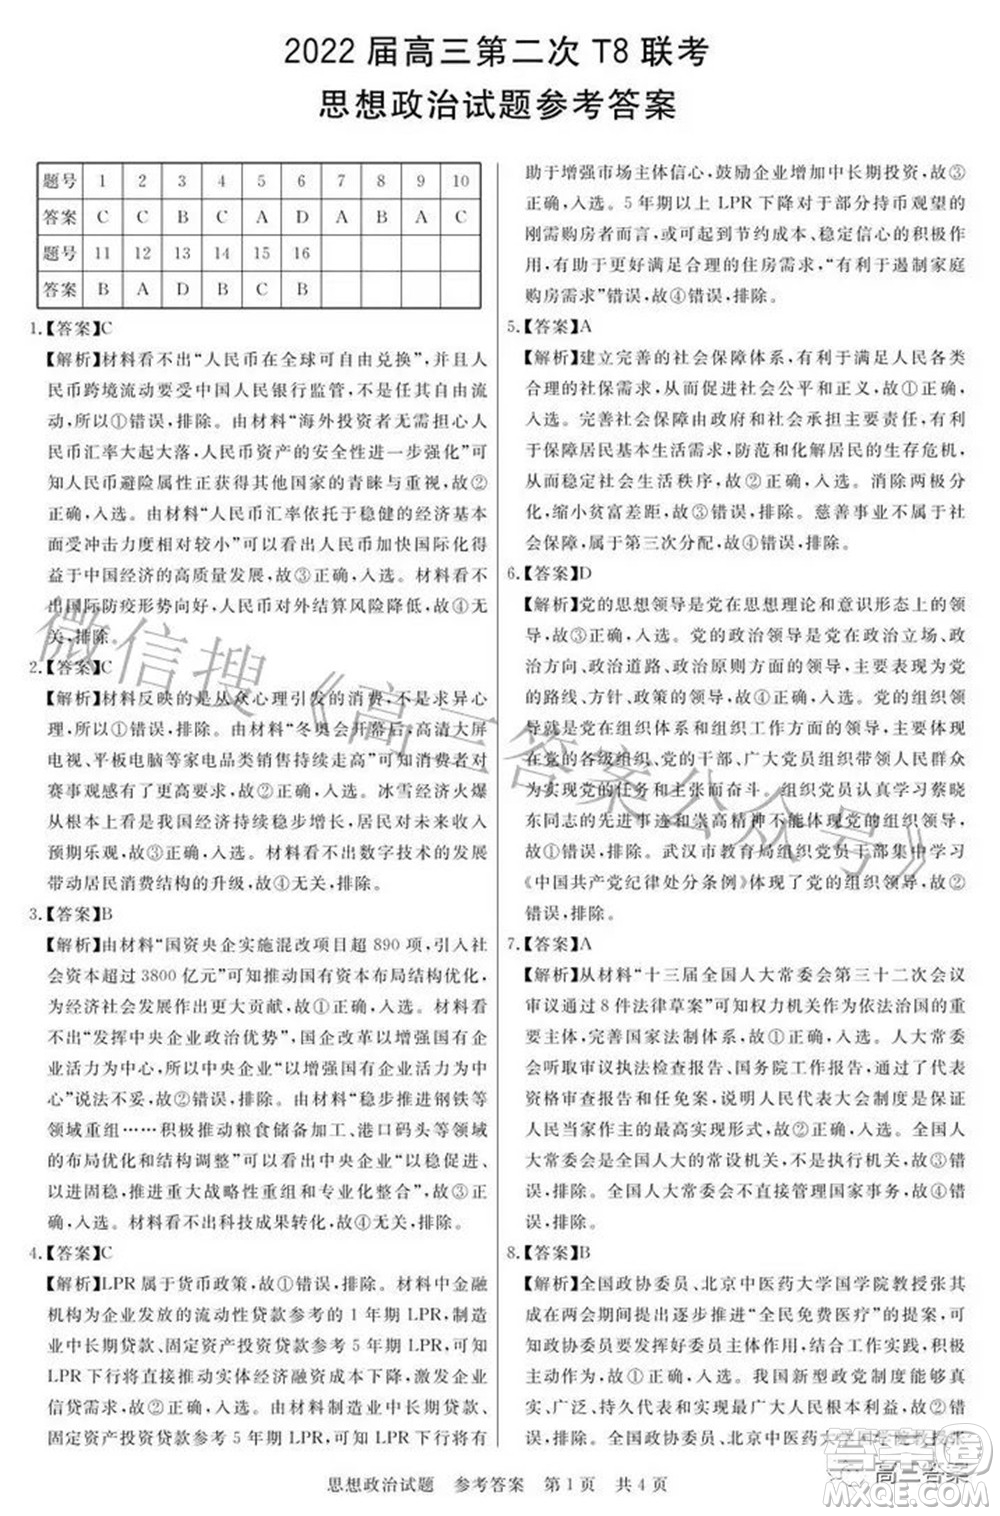 2022 届高三第二次 T8 联考
思想政治试题参考答案
题号 1 2 3 4 5 6 7 8 9 10
答案 C C B C A D A B A C
题号 11 12 13 14 15 16
答案 B A D B C B
1.【答案】C
【解析】材料看不出“人民币在全球可自由兑换”,并且人
民币跨境流动要受中国人民银行监管,不是任其自由流
动,所以①错误,排除。由材料“海外投资者无需担心人
民币汇率大起大落,人民币资产的安全性进一步凸显”可
知人民币避险属性正得到其他国家的青睐与重视,故②
正确,入选。由材料“人民币汇率依托于稳健的经济基本
面受冲击力度相对较小”可以看出人民币加快国际化得
益于中国经济的高质量发展,故③正确,入选。材料看不
出国际防疫形势向好,人民币对外结算风险降低,故④无
关,排除。
2.【答案】C
【解析】材料反映的是从众心理引发的消费,不是求异心
理,故①错误,排除。由材料“冬奥会开幕后,高清大屏
电视、平板电脑等家电品类销售持续走高”可知消费者对
赛事观感有了更高的需求,故②正确,入选。冰雪经济火爆
从根本上看是我国经济持续稳步增长,居民对未来收入
预期乐观,故③正确,入选。材料看不出数字技术的发展
带动居民消费结构的升级,故④无关,排除。
3.【答案】B
【解析】由材料“国资央企实施混改项目超 890 项,引入社
会资本超过 3800 亿元”可知推动国有资本布局结构优化,
为经济社会发展作出更大贡献,故①正确,入选。材料看
不出“发挥中央企业政治优势”,国企改革以增强国有企
业活力为中心,所以“坚持以增强国有企业活力为中
心”说法不妥,故②错误,排除。由材料“稳步推进钢铁等
领域重组……积极推动粮食储备加工、港口码头等领域
的布局优化和结构调整”可以看出中央企业“以稳促进、
以进固稳,推进重大战略性重组和专业化整合”,故③正
确,入选。材料看不出科技成果转化,故④无关,排除。
4.【答案】C
【解析】LPR 属于货币政策,故①错误,排除。材料中金融
机构为企业发放的流动性贷款参考的 1 年期 LPR,制造
业中长期贷款、固定资产投资贷款参考 5 年期 LPR,可知
LPR 下行将直接推动实体经济融资成本下降,激发企业
信贷需求,故②正确,入选。由材料制造业中长期贷款、
固定资产投资贷款参考 5 年期 LPR,可知 LPR 下行将有
助于增强市场主体信心,鼓励企业增加中长期投资,故③
正确,入选。5 年期以上 LPR 下降对于部分持币观望的
刚需购房者而言,或可起到节约成本、稳定信心的积极作
用,有助于更好满足合理的住房需求,“有利于遏制家庭
购房需求”错误,故④错误,排除。
5.【答案】A
【解析】建立完善的社会保障体系,有利于满足人民各类
合理的社保需求,从而促进社会公平和正义,故①正确,
入选。完善社会保障由政府和社会承担主要责任,有利
于保障居民基本生活需求,防范和化解居民的生存危机,
从而稳定社会生活秩序,故②正确,入选。消除两极分
化,缩小贫富差距,故③错误,排除。慈善事业不属于社
会保障,属于第三次分配,故④错误,排除。
6.【答案】D
【解析】党的思想领导是党在思想理论和意识形态上的领
导,故③正确,入选。党的政治领导是党在政治立场、政
治方向、政治道路、政治原则方面的领导,主要体现在党
的路线、方针、政策的领导,故④正确,入选。党的组织领
导就是党在组织体系和组织工作方面的领导,主要体现
在党的各级组织、党的干部、广大党员组织带领人民群众
为实现党的任务和主张而奋斗。组织党员认真学习蔡晓
东同志的先进事迹和崇高精神不能体现党的组织领导,
故①错误,排除。武汉市教育局组织党员干部集中学习
《中国共产党纪律处分条例》体现了党的组织领导,故②
错误,排除。
7.【答案】A
【解析】从材料“十三届全国人大常委会第三十二次会议
审议可通过 8 件法律草案”可知权力机关作为依法治国的重
要主体,完善国家法制体系,故①正确,入选。人大常委
会听取审议执法检查报告、国务院工作报告,通过了代表
资格审查报告和任免案,说明人民代表大会制度是保证
人民当家作主的最高实现形式,故②正确,入选。全国人
大常委会是全国人大的常设机关,不是执行机关,故③错
误,排除。全国人大常委会不直接管理国家事务,故④错
误,排除。
8.【答案】B
【解析】全国政协委员、北京中医药大学国学院教授张其
成在两会期间提出逐步推进“全民免费医疗”的提案,可
知政协委员可以参加政治协商、履行参政议政职能,
故①正确,入选。我国新型政党制度能够真
实、广泛、持久代表和实现最广大人民根本利益,故②错
误,排除。
思想政治试题 参考答案 第 1 页 共 4 页
微信搜《高三答案公众号》
高三答案